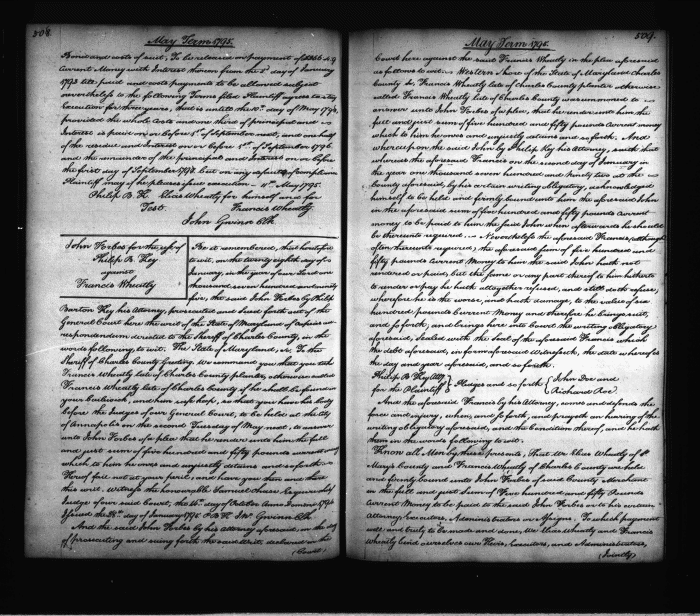 508
May Term 1795.
Bond and costs of suit, To be released on payment of
Current Money with Interest thereon from the 2d day of January
1793 till paid and costs payments to be allowed subject
nevertheless to the following Terms Also Plaintiff agrees to stay
Execution for three years, that is until the 11th day of May 1798,
provided the whole costs and one third of principal and
Interest is paid on or before 1st of September next, and one half
of the residue and Interest on or before 1st of September 1796
and the remainder of the principal and Interest on or before
the first day of September 1797. but on any default of compliance
Plaintiff may if he pleases issue execution 11th May 1795.
Philip B. K. Elias Wheatly for himself and for
Test. Francis Wheatly.
John Gwinn Clk
John Forbes for the use of
Philip B. Key
against
Francis Wheatly
Be it remembered, that heretofore
to wit, on the twenty eighth day of
January, in the year of our Lord one
thousand seven hundred and ninety
five, the said John Forbes by Philip
Barton Key his Attorney, prosecuted and sued forth out of the
General Court here the writ of the State of Maryland of capias ad
respondendum directed to the Sheriff of Charles County, in the
words following, to wit. The State of Maryland, sc. To the
Sheriff of Charles County Greeting, We command you that you take
Francis Wheatly late of Charles County planter, otherwise called
Francis Wheatly late of Charles County if he shall be found in
your bailiwick, and him safe keep, so that you have his body
before the Judges of our General Court, to be held at the city
of Annapolis on the second Tuesday of May next, to answer
unto John Forbes of a plea that he render unto him the full
and just sum of five hundred and fifty pounds current money
which to him he owes and unjustly detains and so forth
Hereof fail not at your peril, and have you then and there
this writ. Witness the honourable Samuel Chase Esquire chief
Judge of our said Court, the 14th day of October Anno Domini 1794
Issued the 28th day of January 1795. P. B. K. Jno. Gwinn Clk
And the said John Forbes by his attorney aforesaid on the day
of prosecuting and suing forth the said Writ, declared in the
(Court)
509.
May Term 1795.
Court here against the said Francis Wheatly in the plea aforesaid
as follows to wit. Western Shore of the State of Maryland Charles
County Sc. Francis Wheatly late of Charles County planter otherwise
called Francis Wheatly late of Charles County was summoned to
answer unto John Forbes of a plea, that he render unto him the
full and just sum of five hundred and fifty pounds current money
which to him he owes and unjustly detains and so forth, And
whereupon the said John by Philip Key his Attorney, saith that
whereas the aforesaid Francis on the second day of January in
the year one thousand seven hundred and ninety two at the
County aforesaid, by his certain writing obligatory, acknowledged
himself to be held and firmly bound unto him the aforesaid John
in the aforesaid sum of five hundred and fifty pounds current
money to be paid to him the said John when afterwards he should
be thereunto required. Nevertheless the aforesaid Francis, although
often thereunto required, the aforesaid sum of five hundred and
fifty pounds Current Money to him the said John hath not
rendered or paid, but the same or any part thereof to him hitherto
to render or pay he hath altogether refused, and still doth refuse,
wherefore he is the worse, and hath damage, to the value of six
hundred pounds Current Money and therefore he brings suit,
and so forth, and brings here into Court the writing Obligatory
aforesaid, Sealed with the Seal of the aforesaid Francis which
the debt aforesaid, in form aforesaid Witnesseth, the date whereof is the
day and year aforesaid, and so forth.
Philip B. Key Atty
for the Plaintiff } Pledges and so forth { John Doe and
Richard Roe
And the aforesaid Francis by his Attorney, comes and defends the
force and injury, when, and so forth, and prayeth an hearing of the
writing obligatory aforesaid, and the Condition thereof, and he hath
them in the words following to wit.
Know all Men by these presents, That We Elias Wheatly of St
Marys County and Francis Wheatly of Charles County are held
and firmly bound unto John Forbes of said County Merchant
in the full and just Sum of Five hundred and fifty Pounds
current Money to be paid to the said John Forbes or to his certain
Attorney, Executors, Administrators or Assigns, To which payment
well and truly to be made and done, We Elias Wheatly and Francis
Wheatly bind ourselves our Heirs, Executors, and Administrators,
(Jointly)